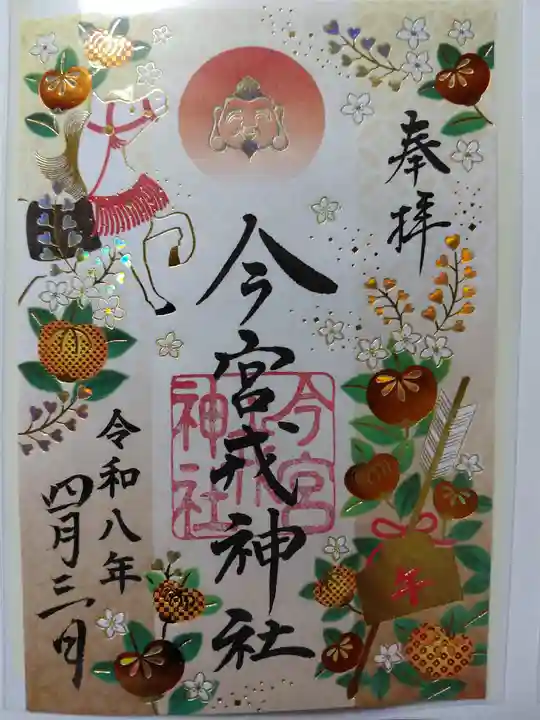 奉拝
今宮戎神社
今宮
戎
神社
午
令和八年
四月三日